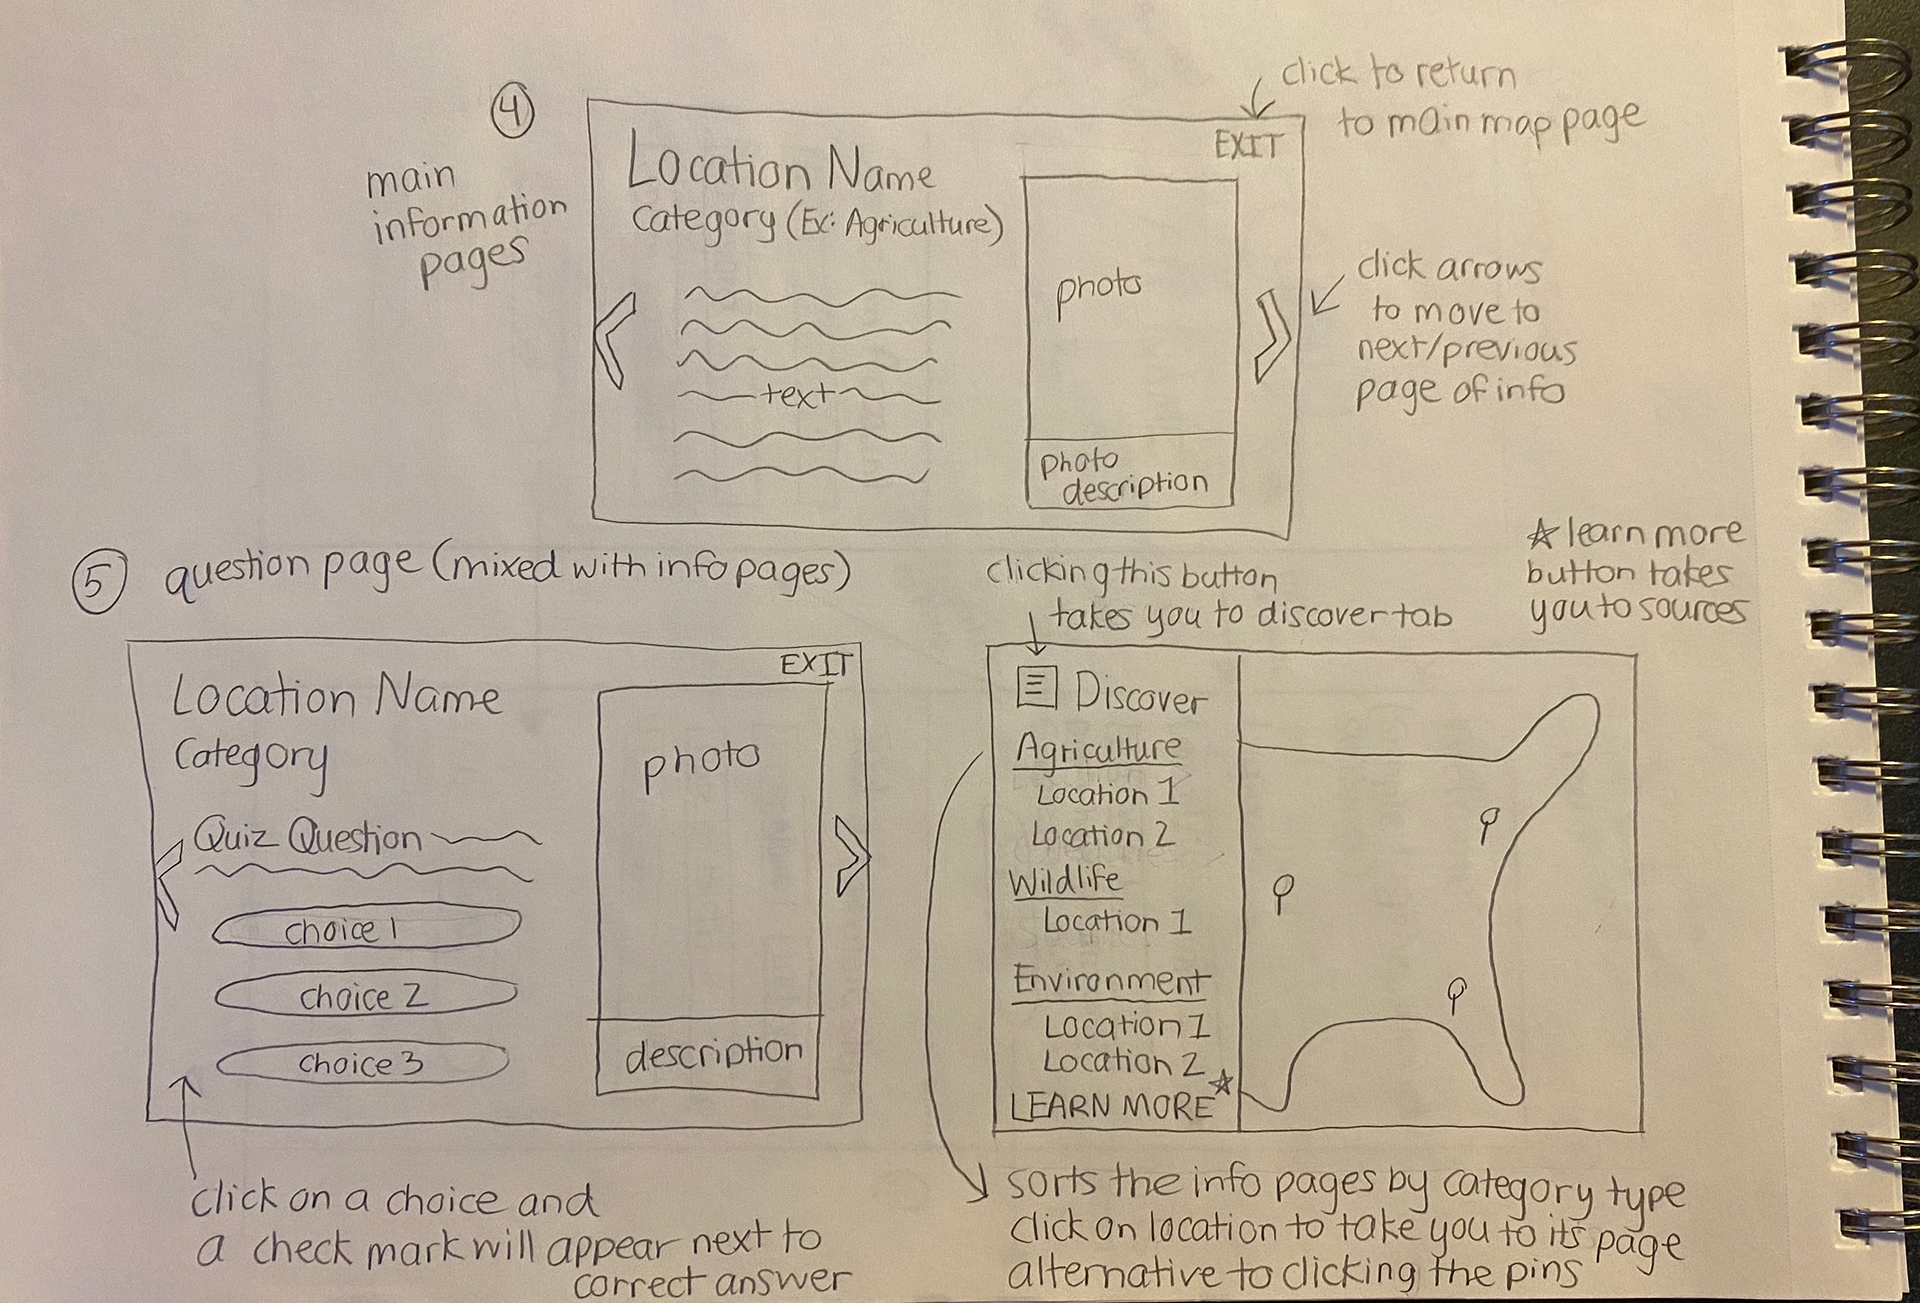 4
main
information
pages
click to return
to main map page
EXIT
Location Name
Category (Ex: Agriculture)
text
photo
photo
description
click arrows
to move to
next/previous
page of info
5 question page (mixed with info pages)
EXIT
Location Name
Category
Quiz Question
choice 1
choice 2
choice 3
photo
description
click on a choice and
a check mark will appear next to
correct answer
clicking this button
takes you to discover tab
☆ learn more
button takes
you to sources
Discover
Agriculture
Location 1
Location 2
Wildlife
Location 1
Environment
Location 1
Location 2
LEARN MORE ☆
sorts the info pages by category type
click on location to take you to its page
alternative to clicking the pins